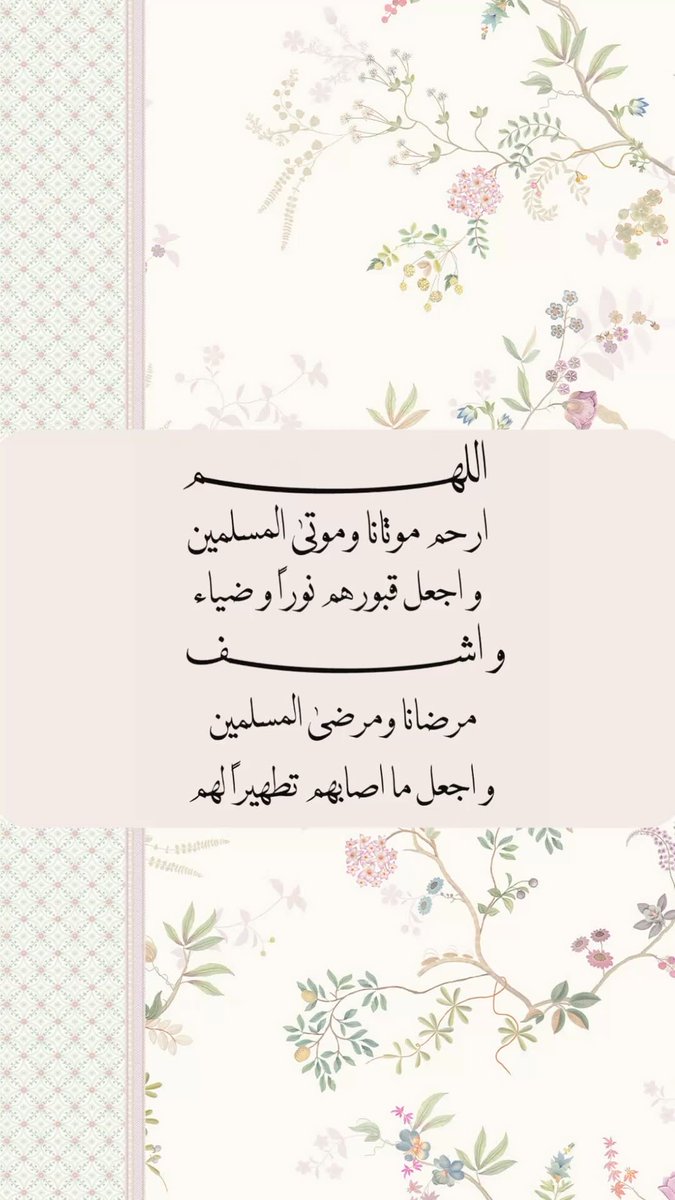 اللهم
ارحم موتانا وموتىٰ المسلمين
واجعل قبورهم نوراً وضياء
واشف
مرضانا ومرضىٰ المسلمين
واجعل ما اصابهم تطهيراً لهم